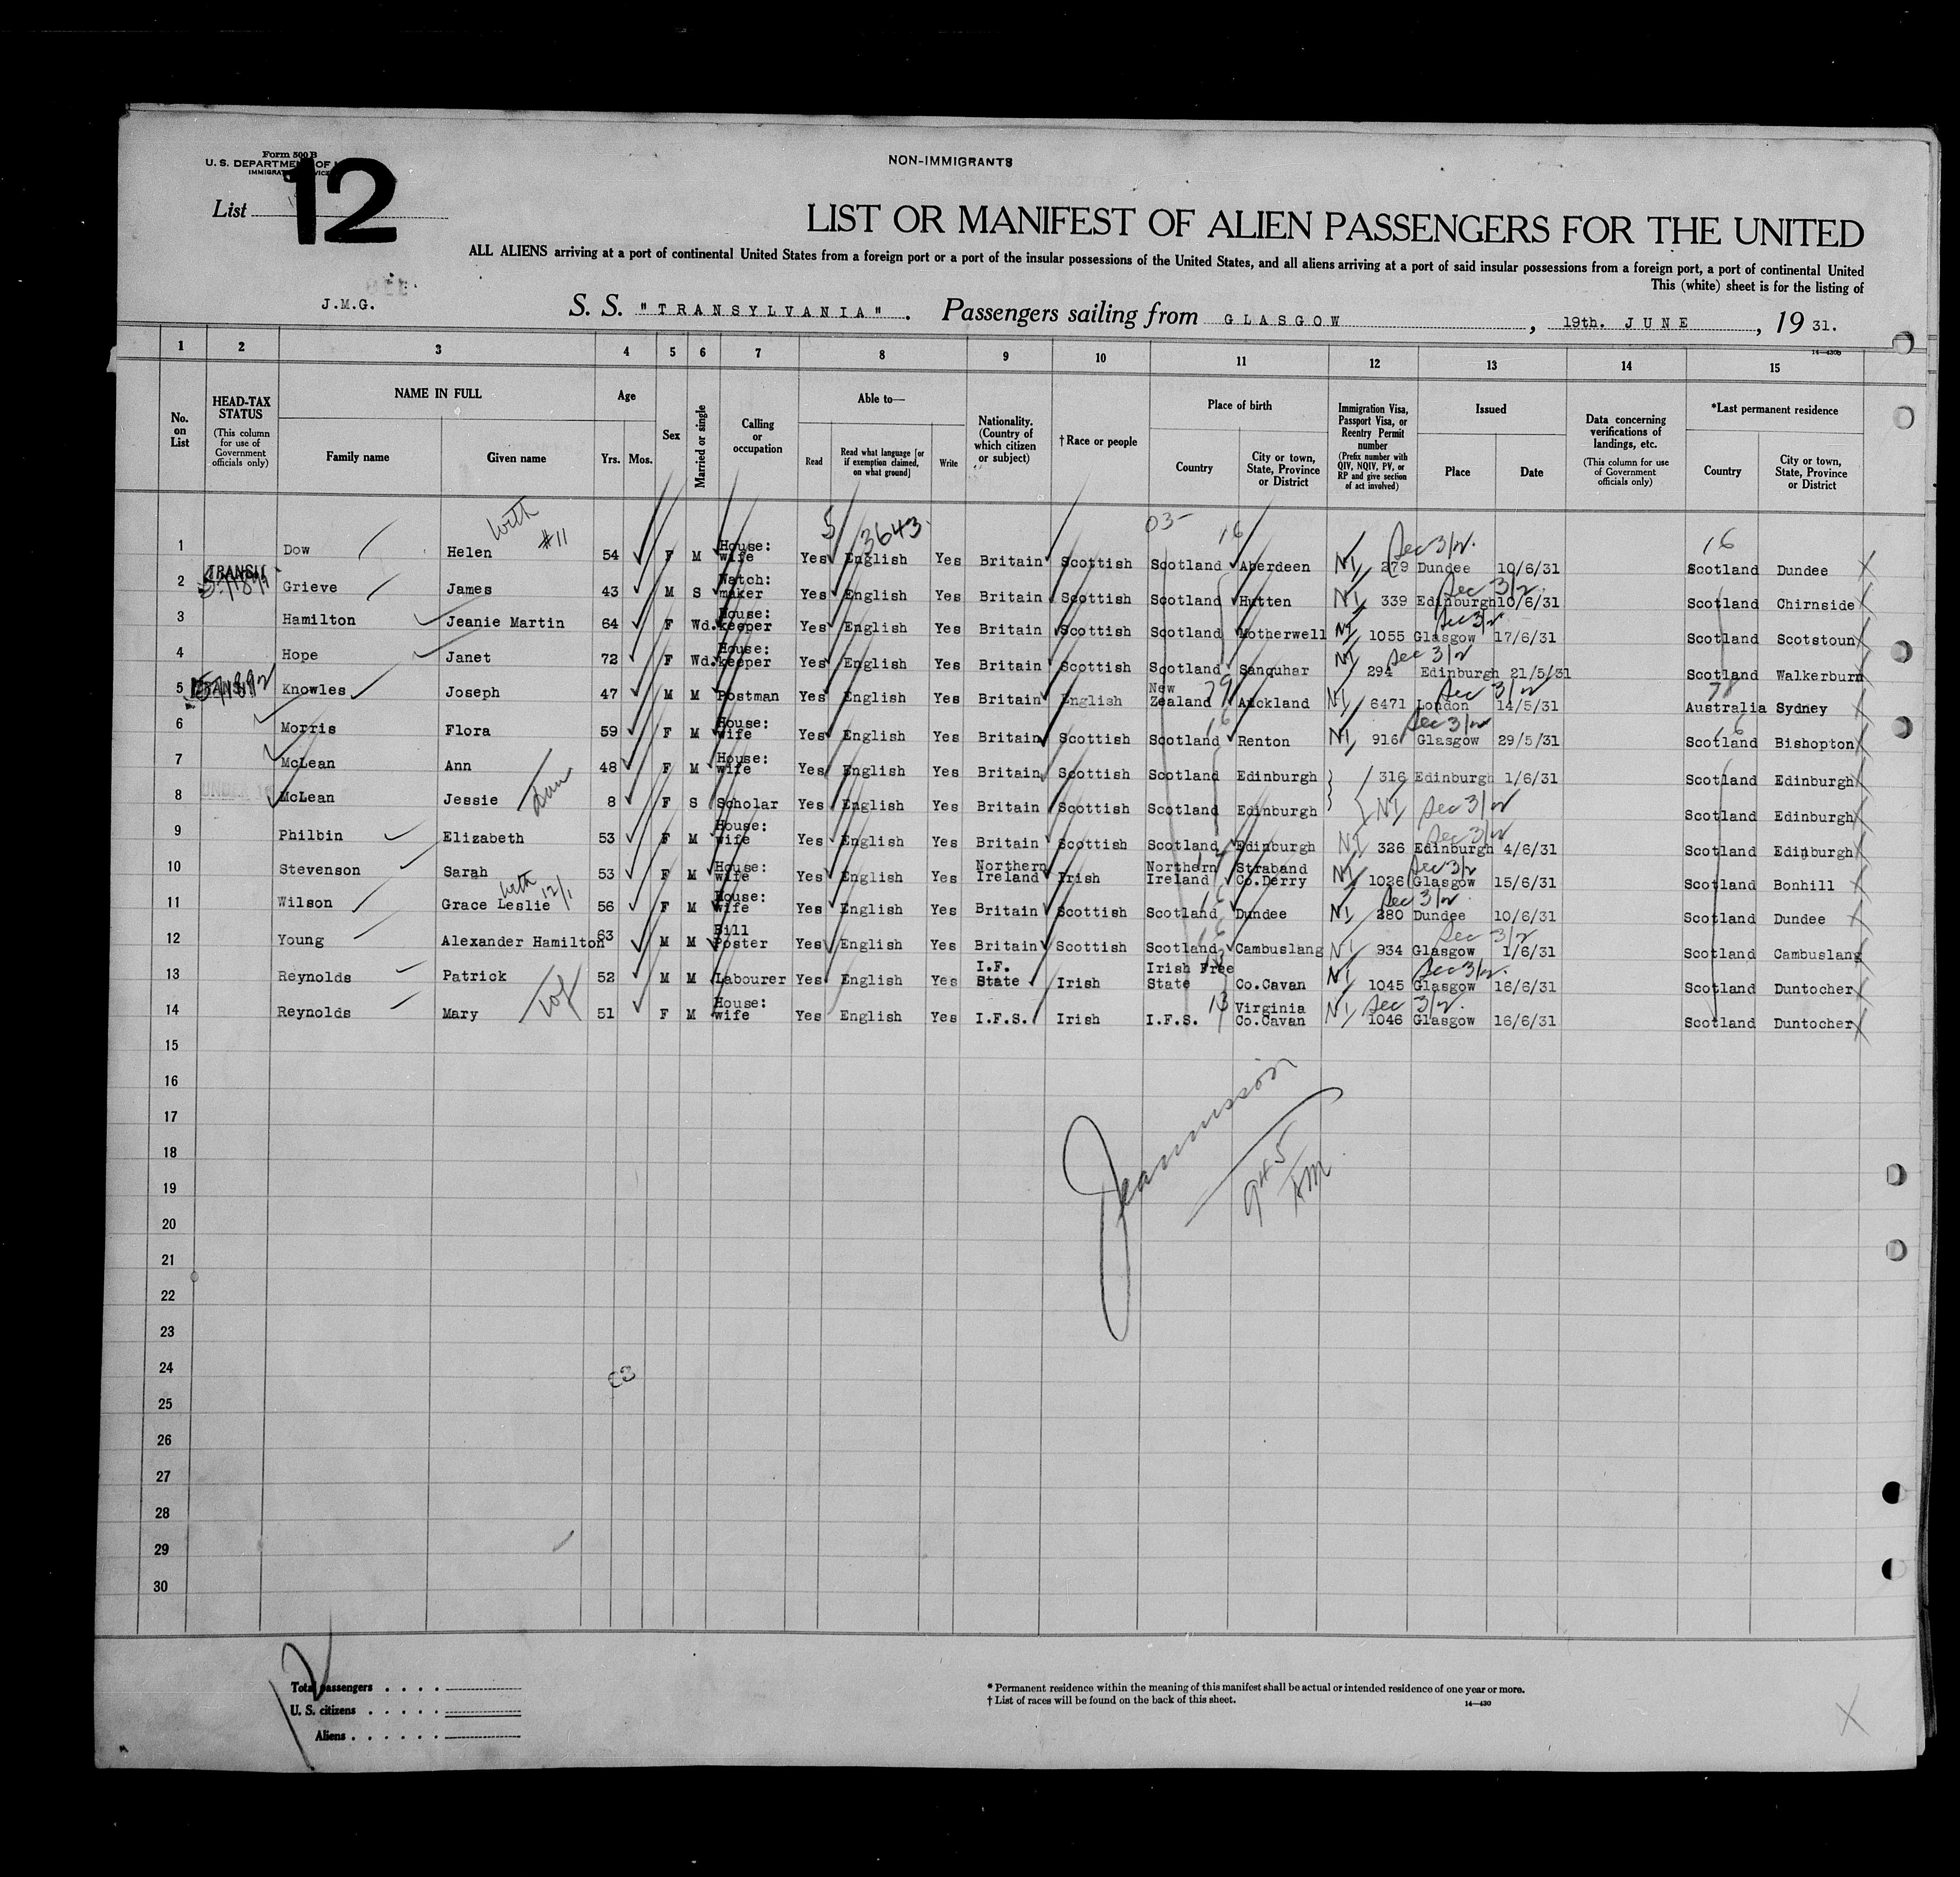 Form 500 B
U. S. DEPARTMENT OF
IMMIGRA
NON-IMMIGRANTS
List 12
LIST OR MANIFEST OF ALIEN PASSENGERS FOR THE UNITED
ALL ALIENS arriving at a port of continental United States from a foreign port or a port of the insular possessions of the United States, and all aliens arriving at a port of said insular possessions from a foreign port, a port of continental United
This (white) sheet is for the listing of
J.M.G. S. S. "TRANSYLVANIA". Passengers sailing from GLASGOW, 19th. JUNE, 19 31.
14—430b
1 2 3 4 5 6 7 8 9 10 11 12 13 14 15
No. on List
HEAD-TAX STATUS
(This column for use of Government officials only)
NAME IN FULL
Family name
Given name
Age
Yrs. Mos.
Sex
Married or single
Calling or occupation
Able to—
Read
Read what language [or if exemption claimed, on what ground]
Write
Nationality. (Country of which citizen or subject)
† Race or people
Place of birth
Country
City or town, State, Province or District
Immigration Visa, Passport Visa, or Reentry Permit number
(Prefix number with QIV, NQIV, PV, or RP and give section of act involved)
Issued
Place
Date
Data concerning verifications of landings, etc.
(This column for use of Government officials only)
*Last permanent residence
Country
City or town, State, Province or District
with #11 5 3643 03- 16 Sec 3/2. 16
1 Dow Helen 54 F M House: wife Yes English Yes Britain Scottish Scotland Aberdeen NI 279 Dundee 10/6/31 Scotland Dundee
TRANSIT
2 Grieve James 43 M S Watch: maker Yes English Yes Britain Scottish Scotland Hutten NI 339 Edinburgh 10/6/31 Sec 3/2 Scotland Chirnside
3 Hamilton Jeanie Martin 64 F Wd. House: keeper Yes English Yes Britain Scottish Scotland Motherwell NI 1055 Glasgow 17/6/31 Sec 3/2 Scotland Scotstoun
4 Hope Janet 72 F Wd. House: keeper Yes English Yes Britain Scottish Scotland Sanquhar NI 294 Edinburgh 21/5/31 Sec 3/2 Scotland Walkerburn
5 Knowles Joseph 47 M M Postman Yes English Yes Britain English New Zealand 79 Auckland NI 6471 London 14/5/31 Sec 3/2 Australia Sydney
6 Morris Flora 59 F M House: wife Yes English Yes Britain Scottish Scotland 16 Renton NI 916 Glasgow 29/5/31 Sec 3/2 16 Scotland Bishopton
7 McLean Ann 48 F M House: wife Yes English Yes Britain Scottish Scotland Edinburgh 316 Edinburgh 1/6/31 Scotland Edinburgh
8 McLean Jessie 8 F S Scholar Yes English Yes Britain Scottish Scotland Edinburgh NI Sec 3/2 Scotland Edinburgh
9 Philbin Elizabeth 53 F M House: wife Yes English Yes Britain Scottish Scotland Edinburgh NI 326 Edinburgh 4/6/31 Sec 3/2 Scotland Edinburgh
10 Stevenson Sarah 53 F M House: wife Yes English Yes Northern Ireland Irish Northern Ireland Straband Co.Derry NI 1026 Glasgow 15/6/31 Sec 3/2 Scotland Bonhill
11 Wilson Grace Leslie with 12/1 56 F M House: wife Yes English Yes Britain Scottish Scotland 16 Dundee NI 280 Dundee 10/6/31 Sec 3/2. Scotland Dundee
12 Young Alexander Hamilton 63 M M Bill Poster Yes English Yes Britain Scottish Scotland 16 Cambuslang NI 934 Glasgow 1/6/31 Sec 3/2 Scotland Cambuslang
13 Reynolds Patrick 52 M M Labourer Yes English Yes I.F. State Irish Irish Free State Co.Cavan NI 1045 Glasgow 16/6/31 Sec 3/2. Scotland Duntocher
14 Reynolds Mary 51 F M House: wife Yes English Yes I.F.S. Irish I.F.S. 13 Virginia Co.Cavan NI 1046 Glasgow 16/6/31 Sec 3/2. Scotland Duntocher
15
16
17
18
19
20
21
22
23
24
25
26
27
28
29
30
945 AM
Total passengers
U. S. citizens
Aliens
* Permanent residence within the meaning of this manifest shall be actual or intended residence of one year or more.
† List of races will be found on the back of this sheet.
14—430